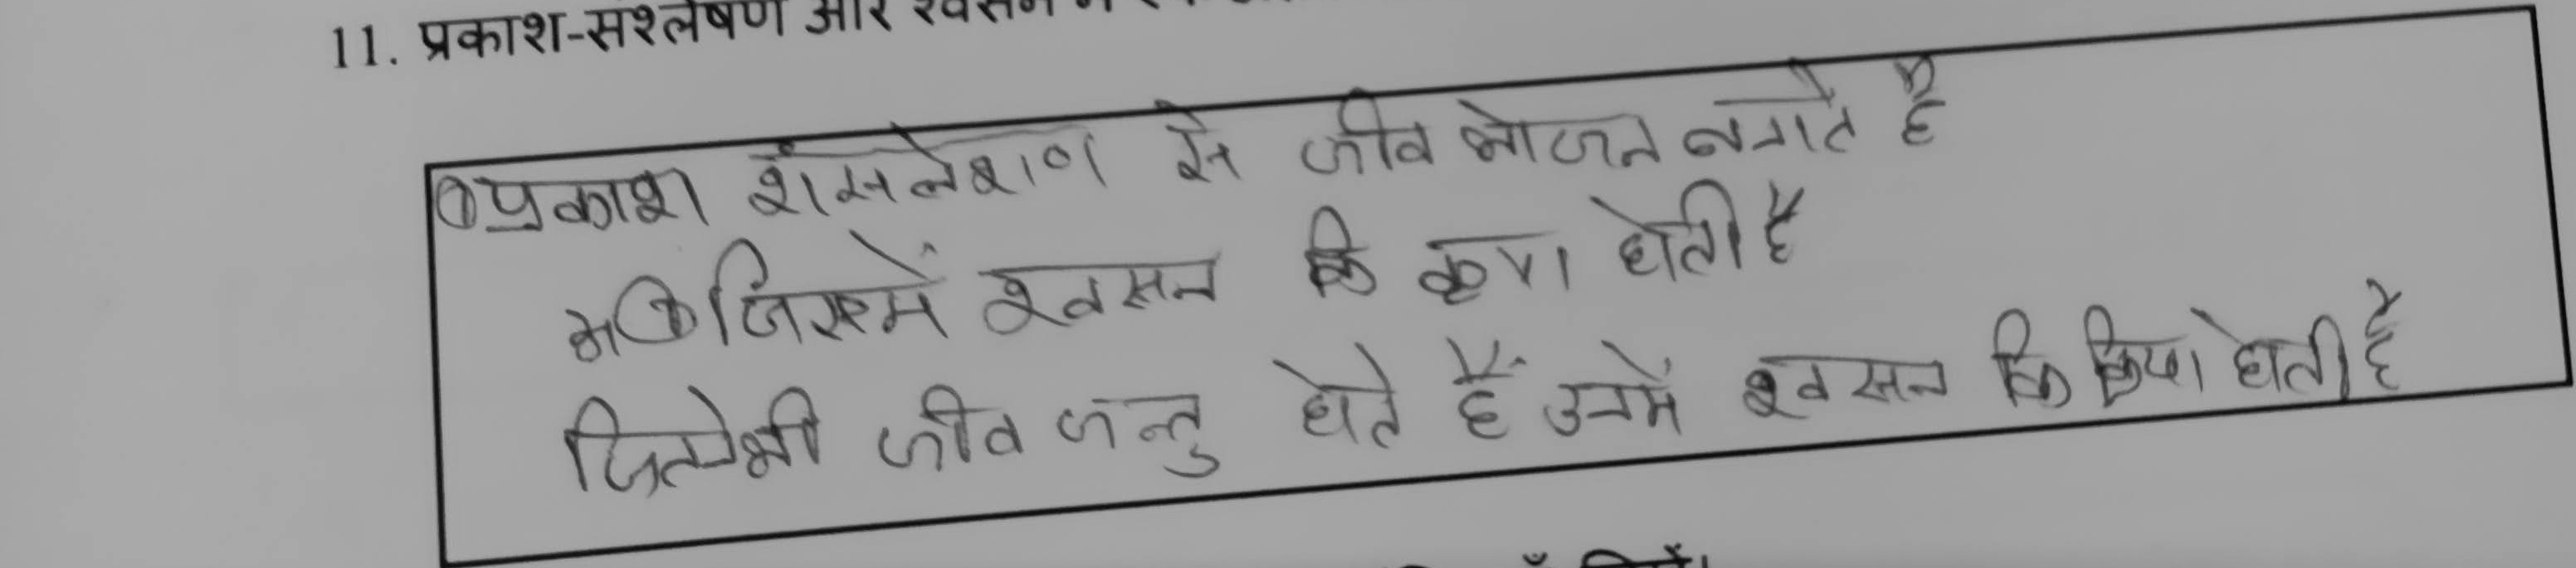 11. प्रकाश-संश्लेषण और श्वसन
①प्रकाश शंसलेशाण से जीव भोजन बनाते है
② जिसमें श्वसन कि कृया होती है
जितनेभी जीव जन्तु होते हैं उनमें श्वसन कि क्रिया होती है